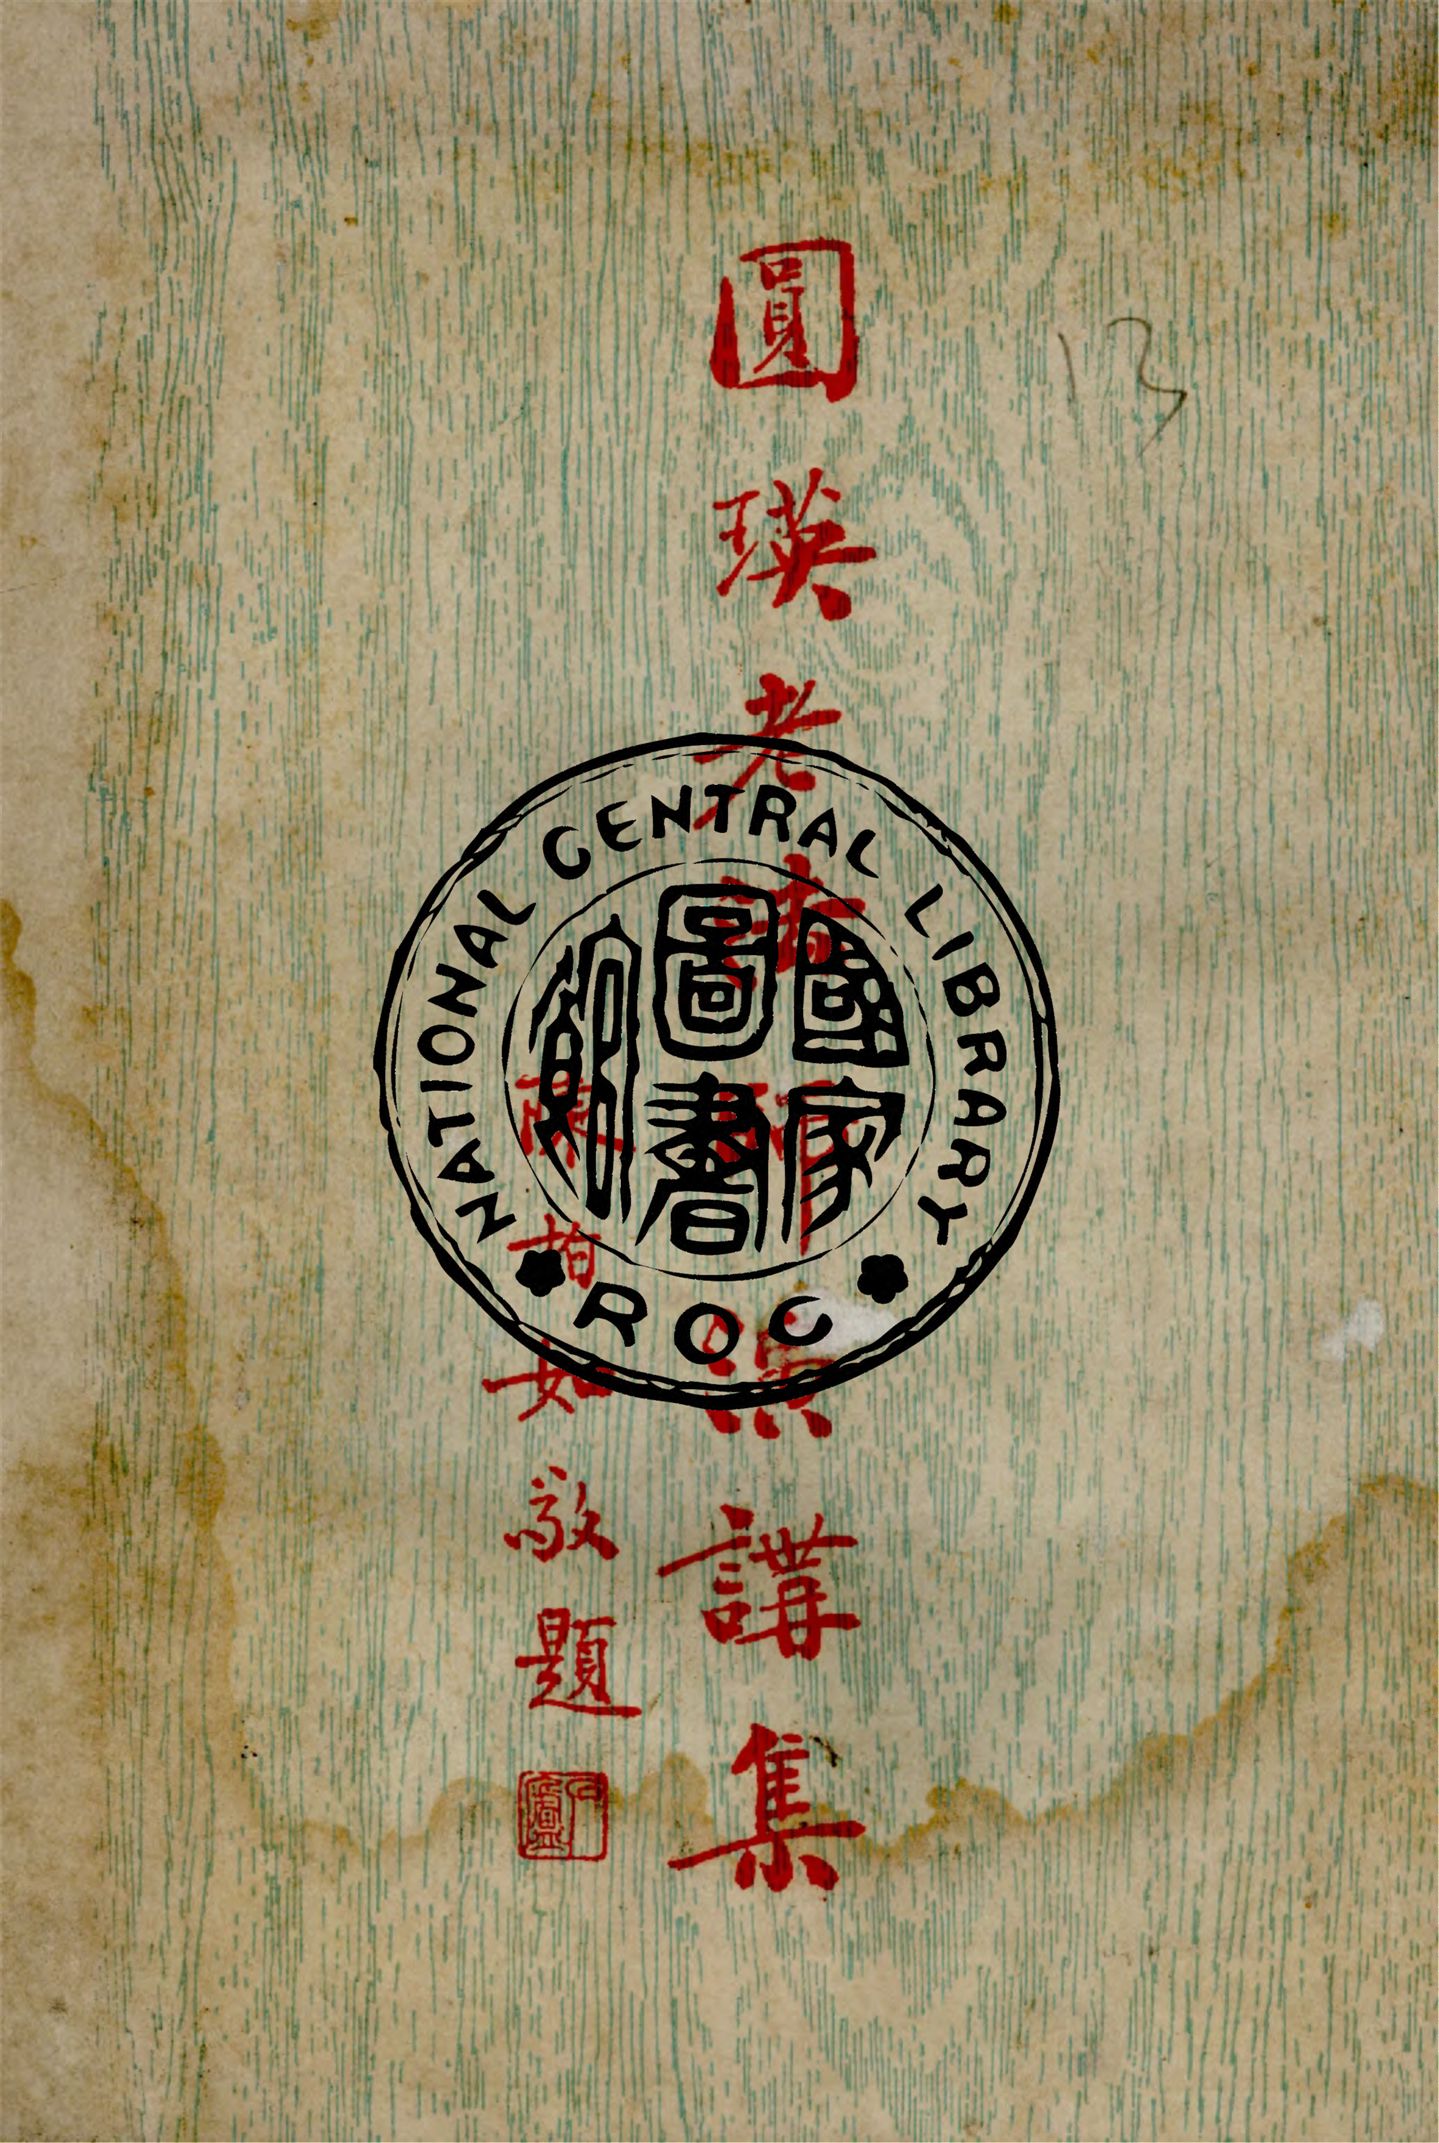 13
圓瑛老法師演講集
如敬題
NATIONAL CENTRAL LIBRARY
國家
圖書
館
ROC